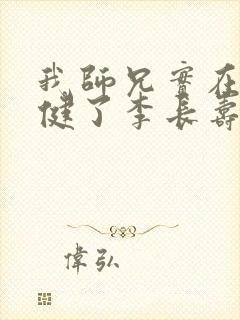 我師兄實在
健了李長壽
偉弘